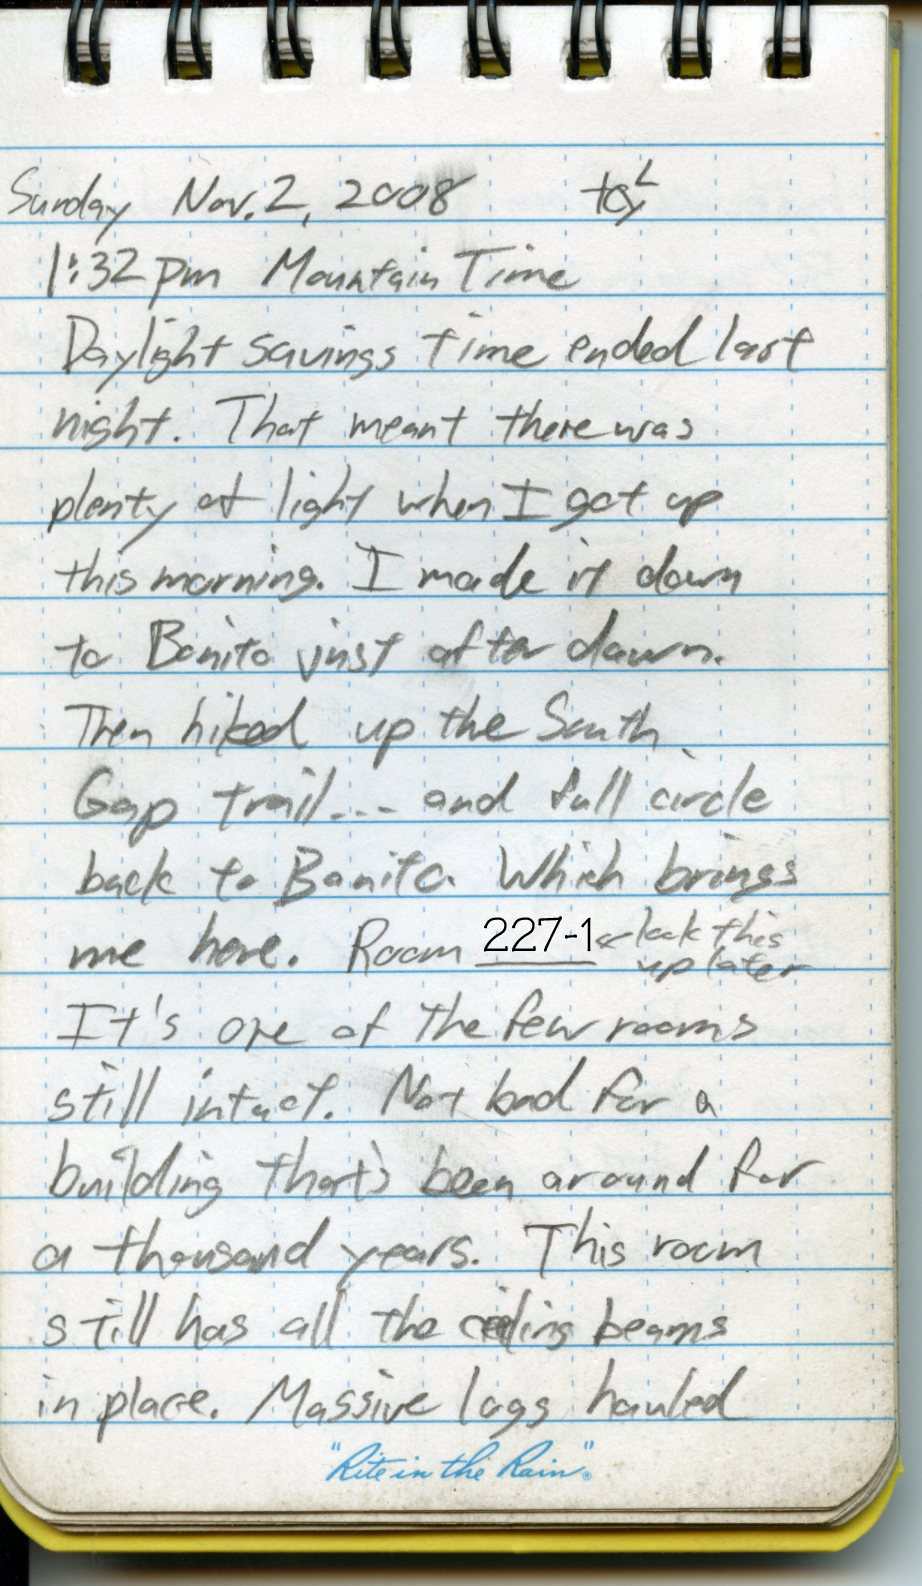 Sunday Nov. 2, 2008
1:32 pm Mountain Time
Daylight savings time ended last
night. That meant there was
plenty of light when I got up
this morning. I made it down
to Bonito just after dawn.
Then hiked up the South
Gap trail... and full circle
back to Bonito. Which brings
me here. Room 227-1 ← look this
up later
It's one of the few rooms
still intact. Not bad for a
building that's been around for
a thousand years. This room
still has all the ceiling beams
in place. Massive logs hauled
"Rite in the Rain".